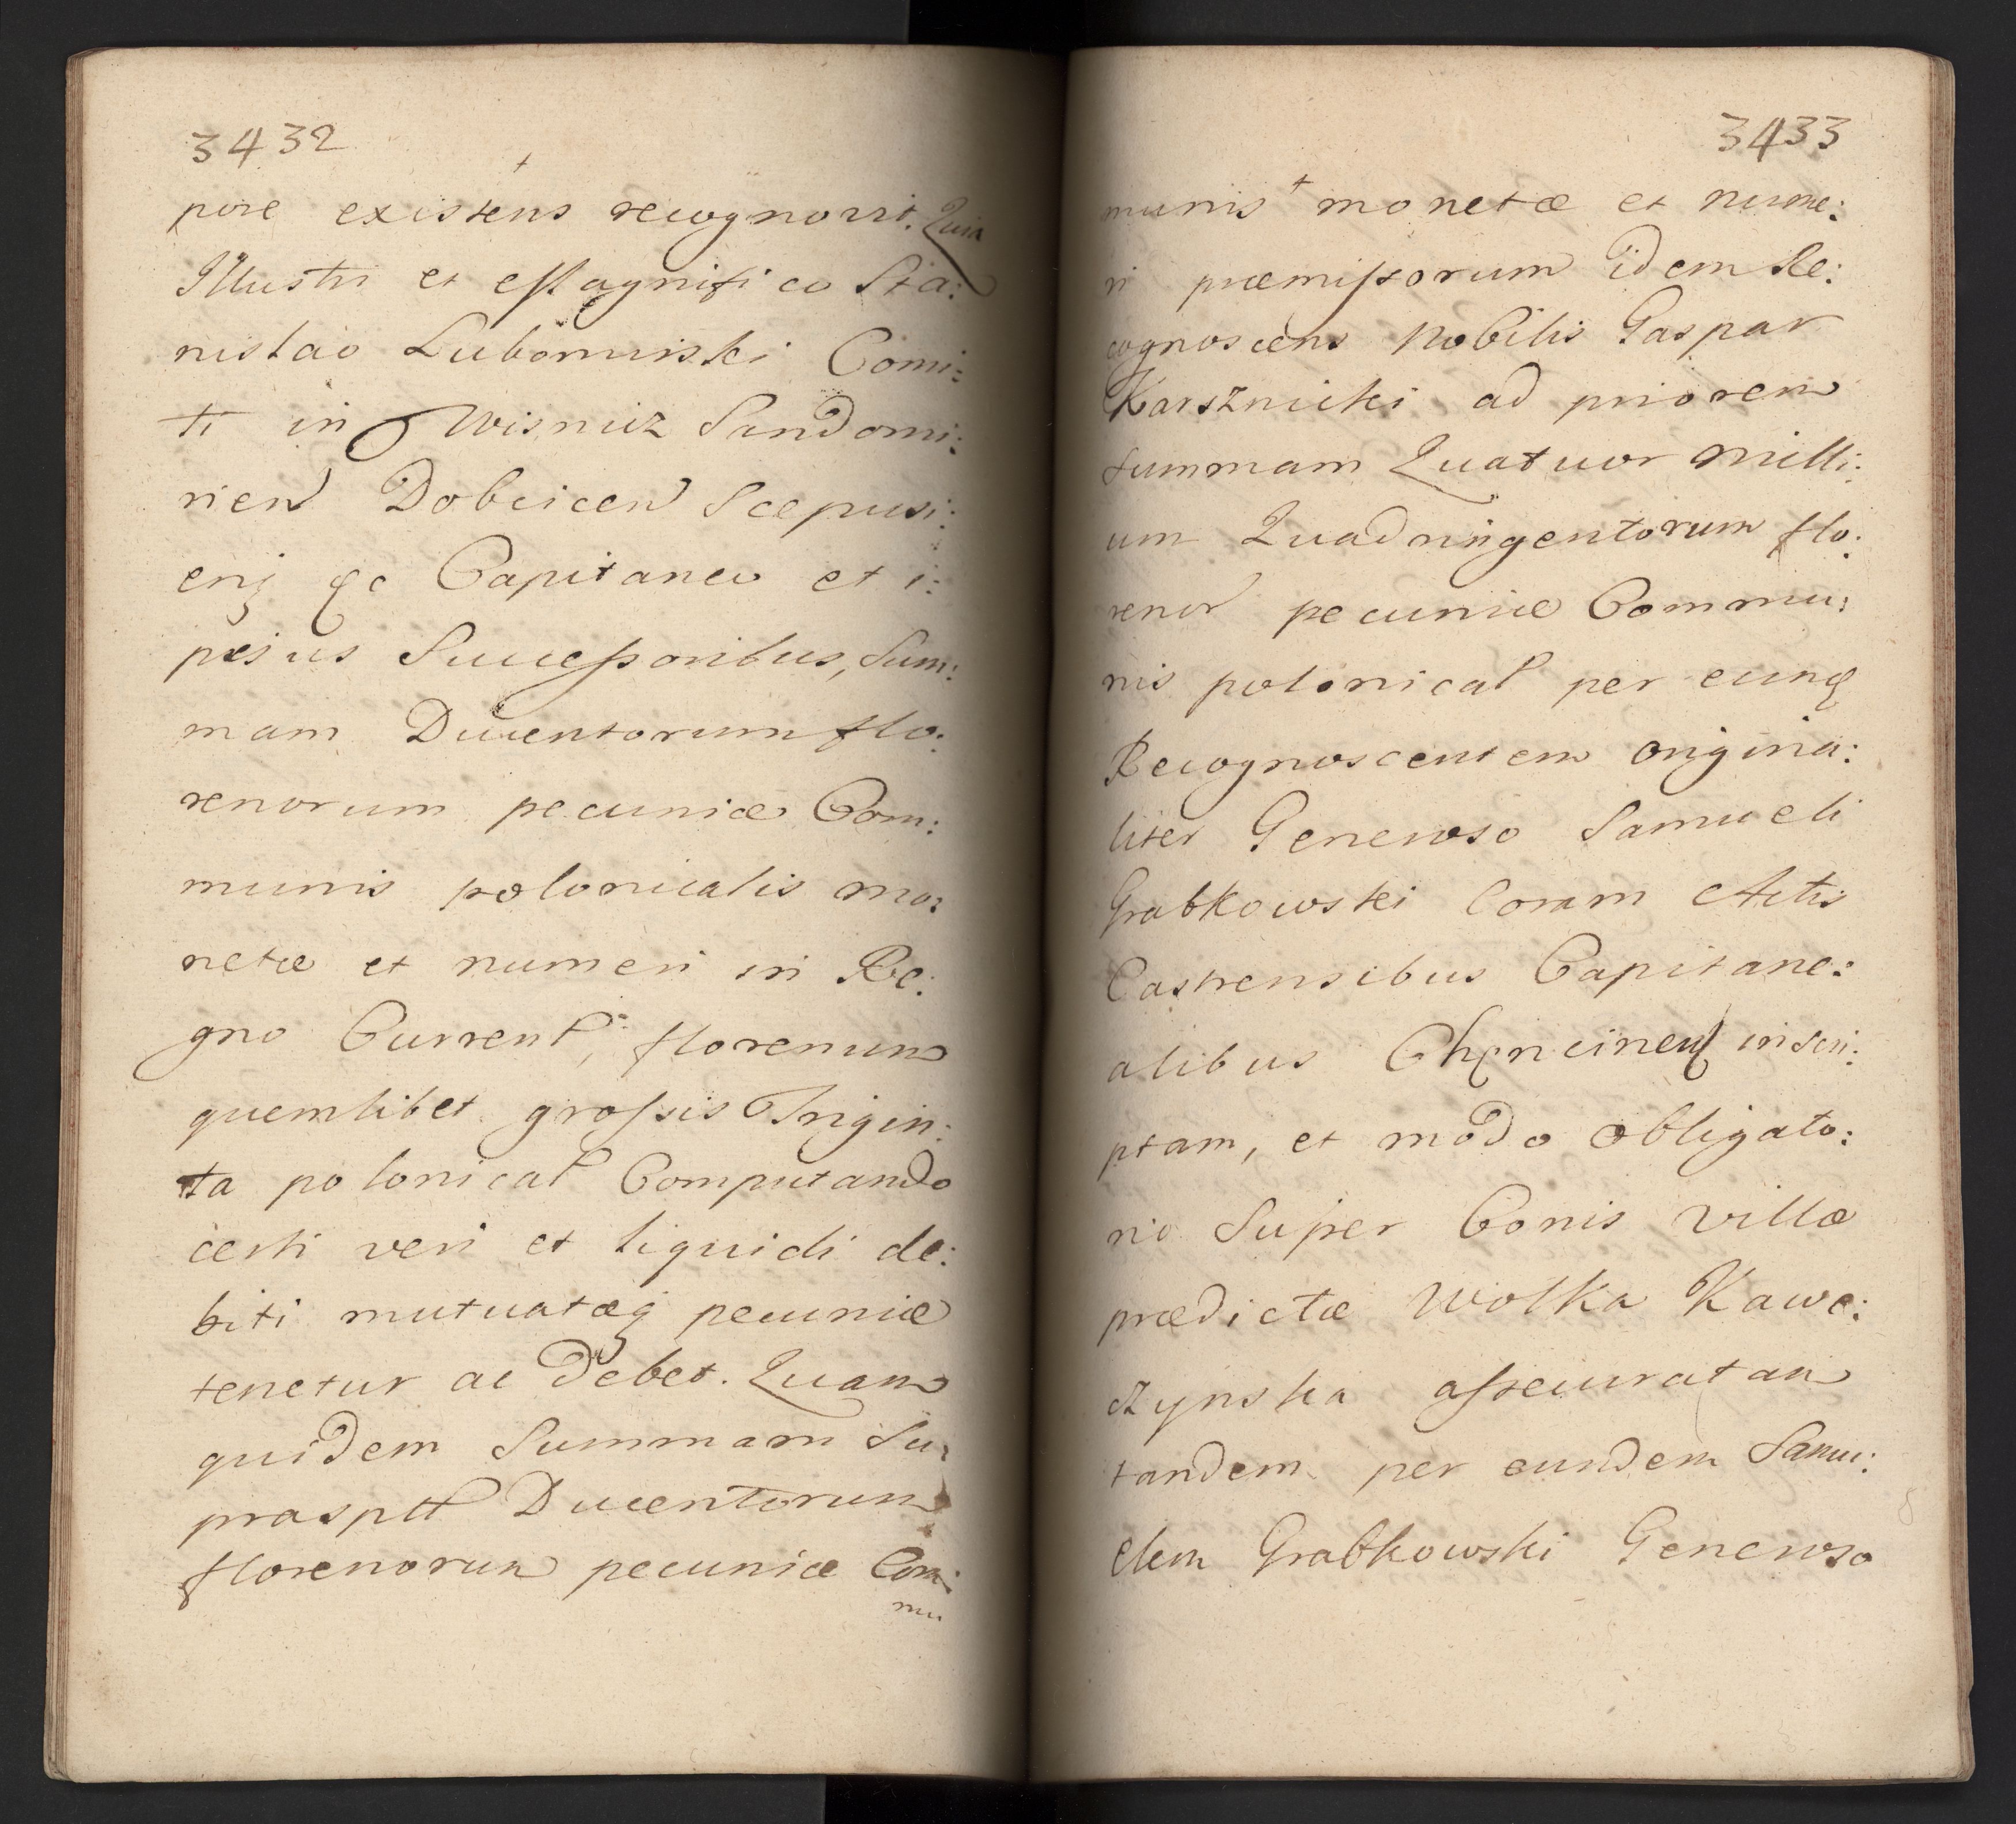 3432
pore existens recognovit. Quia
Illustri et Magnifico Sta:
nislao Lubomirski Comi:
ti in Wisnicz Sandomi:
rien Dobcicen Scepusi:
enq &c Capitaneo et i:
psius Successoribus, Sum:
mam Ducentorum flo:
renorum pecuniæ Com:
munis polonicalis mo:
netæ et numeri in Re:
gno Current, florenum
quemlibet grossis Trigin:
ta polonical Computando
certi veri et liquidi de:
biti mutuatæq pecuniæ
tenetur ac Debet. Quam
quidem Summam Su:
prasptt Ducentorum
florenorum pecuniæ Com:
mu
3433
munis monetæ et nume:
ri præmissorum idem Re:
cognoscens Nobilis Gaspar
Karsznicki ad priorem
summam Quatuor Milli:
um Quadringentorum flo:
renor pecuniæ Commu:
nis polonical per eunq
Recognoscentem origina:
liter Generoso Samueli
Grabkowski Coram Actis
Castrensibus Capitane:
alibus Chęncinen inscri:
ptam, et modo obligato:
rio Super Bonis villæ
prædictæ Wolka Kawe:
czynska assecuratam
tandem per eundem Samu:
elem Grabkowski Generoso